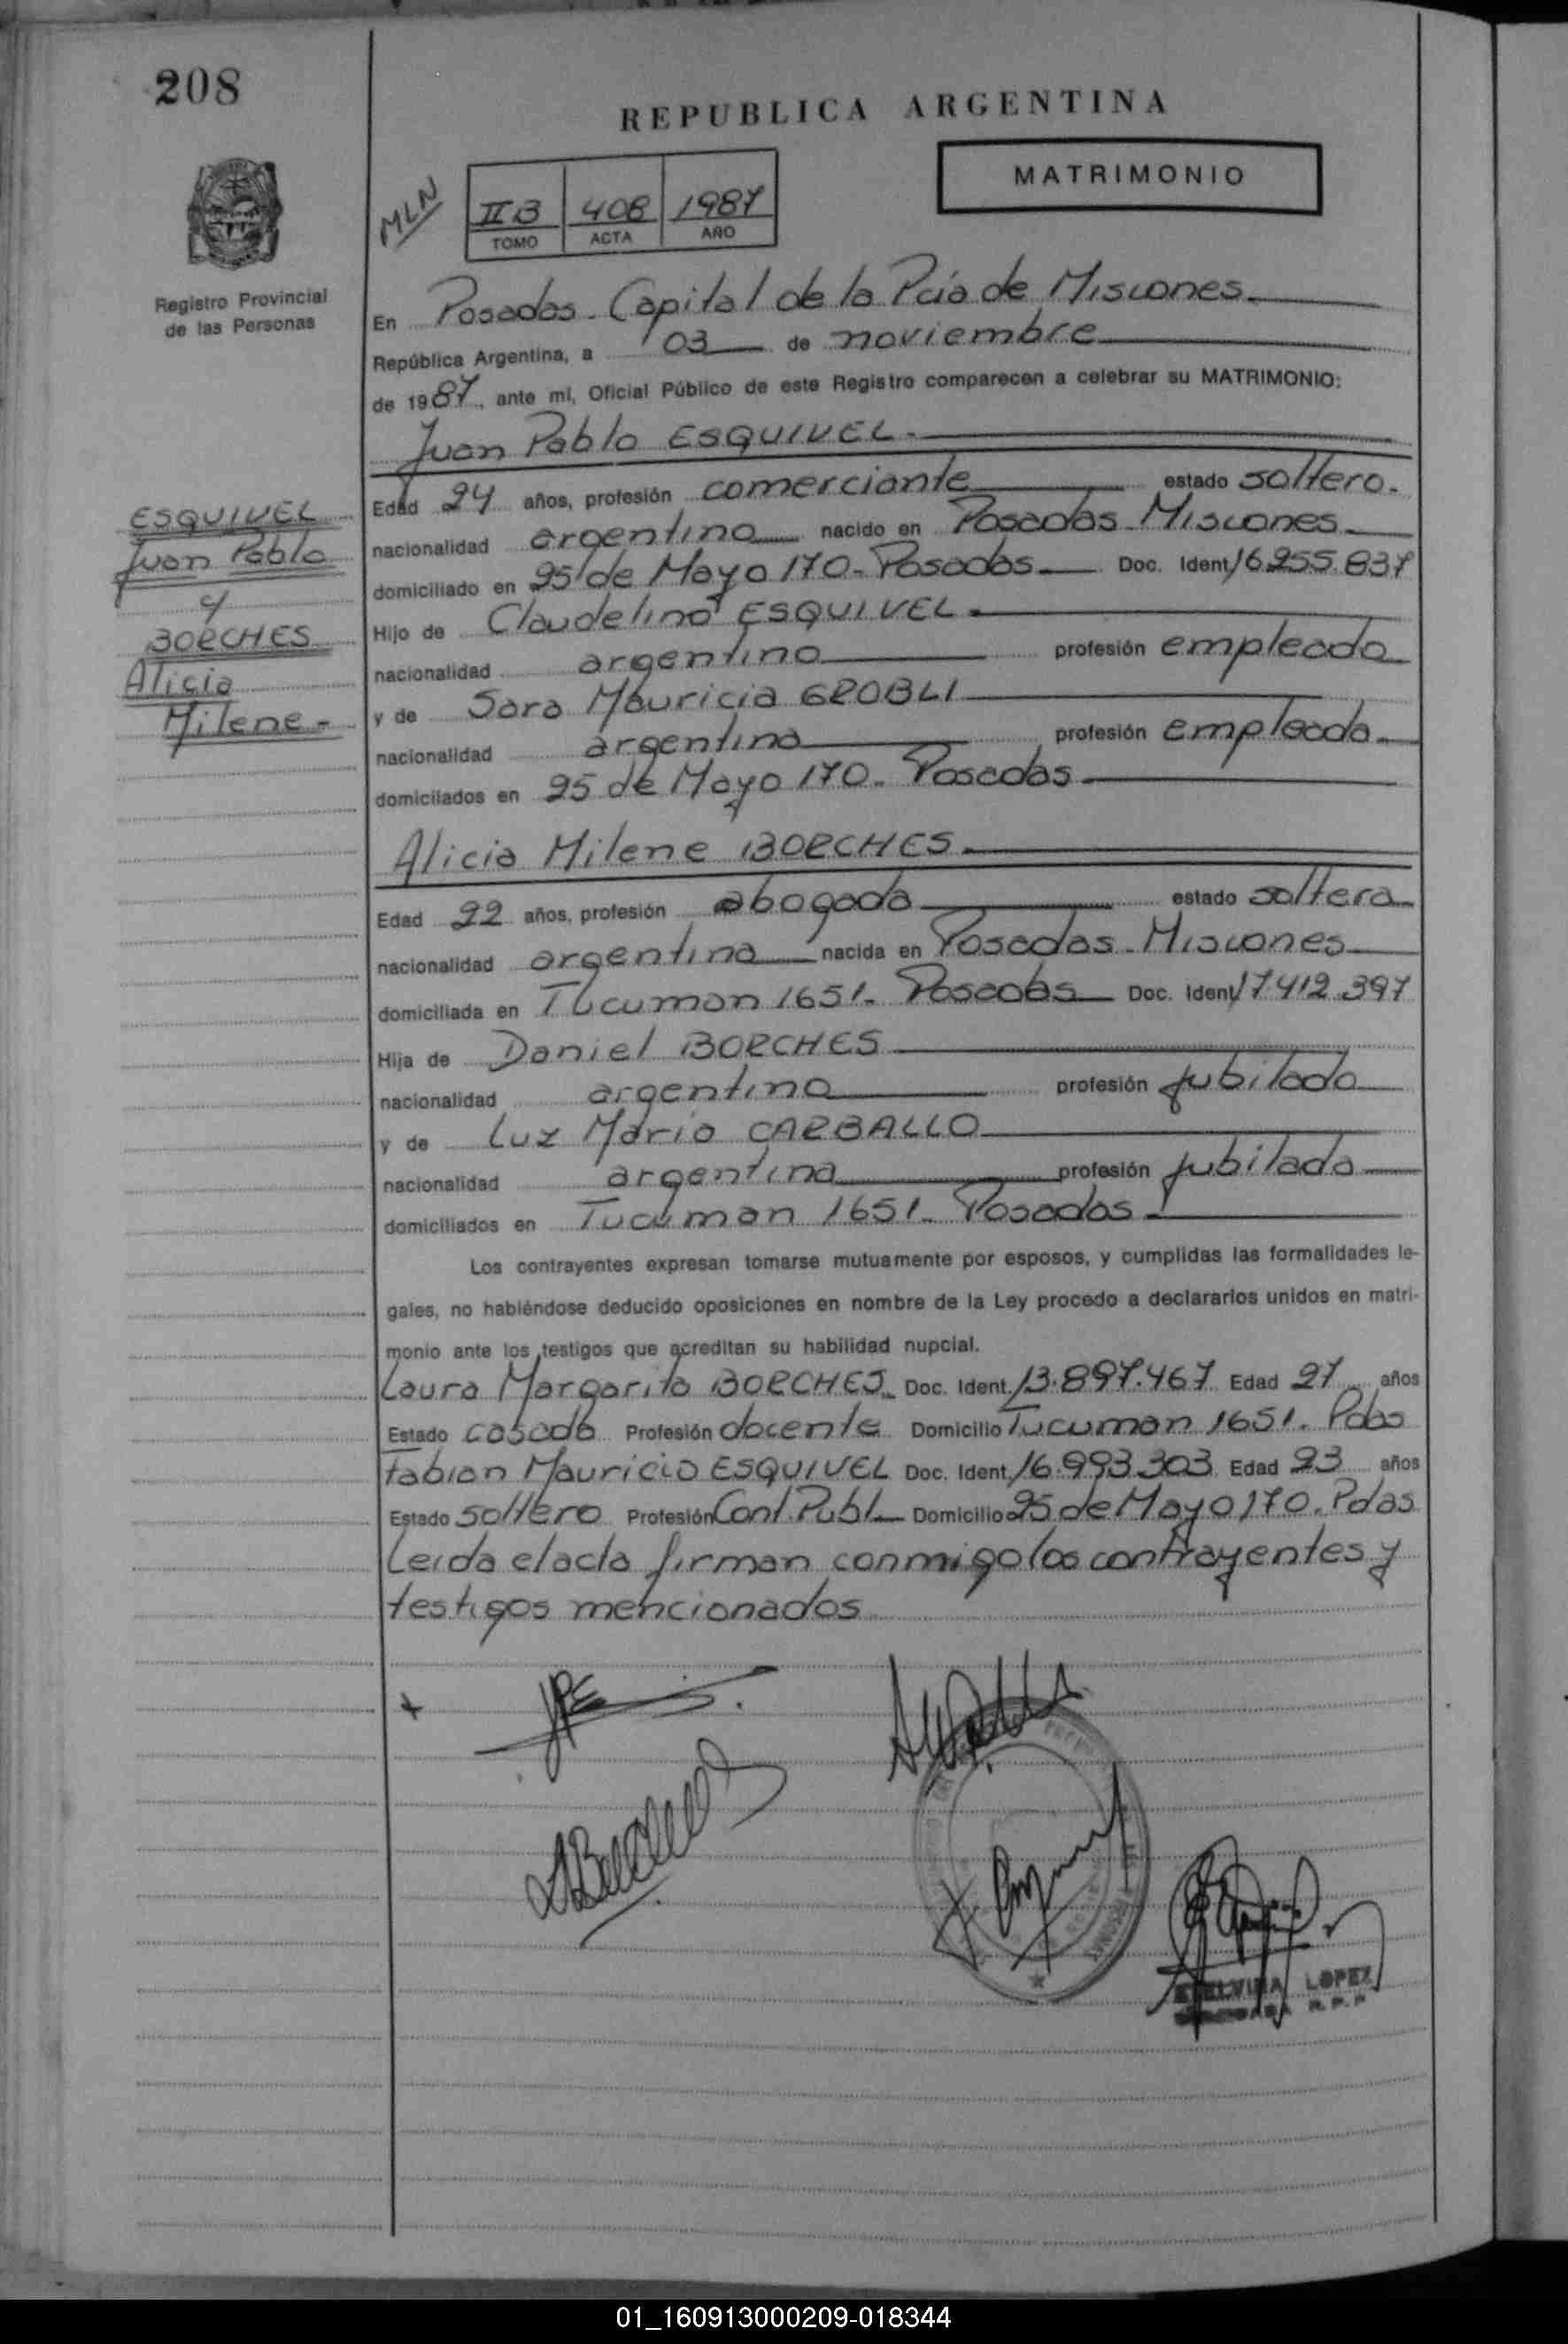 208
REPUBLICA ARGENTINA
MATRIMONIO
MLN
II B 408 1987
TOMO ACTA AÑO
Registro Provincial
de las Personas
En Posadas. Capital de la Pcia de Misiones.
República Argentina, a 03 de noviembre
de 1987, ante mi, Oficial Público de este Registro comparecen a celebrar su MATRIMONIO:
Juan Pablo ESQUIVEL.
Edad 24 años, profesión comerciante estado soltero.
nacionalidad argentina nacido en Posadas Misiones
domiciliado en 25 de Mayo 170. Posadas Doc. Ident. 16.255.837
Hijo de Claudelino ESQUIVEL.
nacionalidad argentino profesión empleado
y de Sara Mauricia GROBLI
nacionalidad argentina profesión empleada.
domicilados en 25 de Mayo 170. Posadas
ESQUIVEL
Juan Pablo
y
BORCHES
Alicia
Milene.
Alicia Milene BORCHES.
Edad 22 años, profesión abogada estado soltera
nacionalidad argentina nacida en Posadas. Misiones
domiciliada en Tucuman 1651. Posadas Doc. Ident. 17.412.397
Hija de Daniel BORCHES
nacionalidad argentino profesión jubilado
y de Luz Maria CARBALLO
nacionalidad argentina profesión jubilada
domiciliados en Tucuman 1651. Posadas.
Los contrayentes expresan tomarse mutuamente por esposos, y cumplidas las formalidades le-
gales, no habiéndose deducido oposiciones en nombre de la Ley procedo a declararlos unidos en matri-
monio ante los testigos que acreditan su habilidad nupcial.
Laura Margarita BORCHES Doc. Ident. 13.897.467 Edad 27 años
Estado casada Profesión docente Domicilio Tucuman 1651. Pdas
Fabian Mauricio ESQUIVEL Doc. Ident. 16.993.303 Edad 23 años
Estado soltero Profesión Cont. Publ. Domicilio 25 de Mayo 170. Pdas
Leida el acta firman conmigo los contrayentes y
testigos mencionados
LOPEZ
R.P.P.
01_160913000209-018344